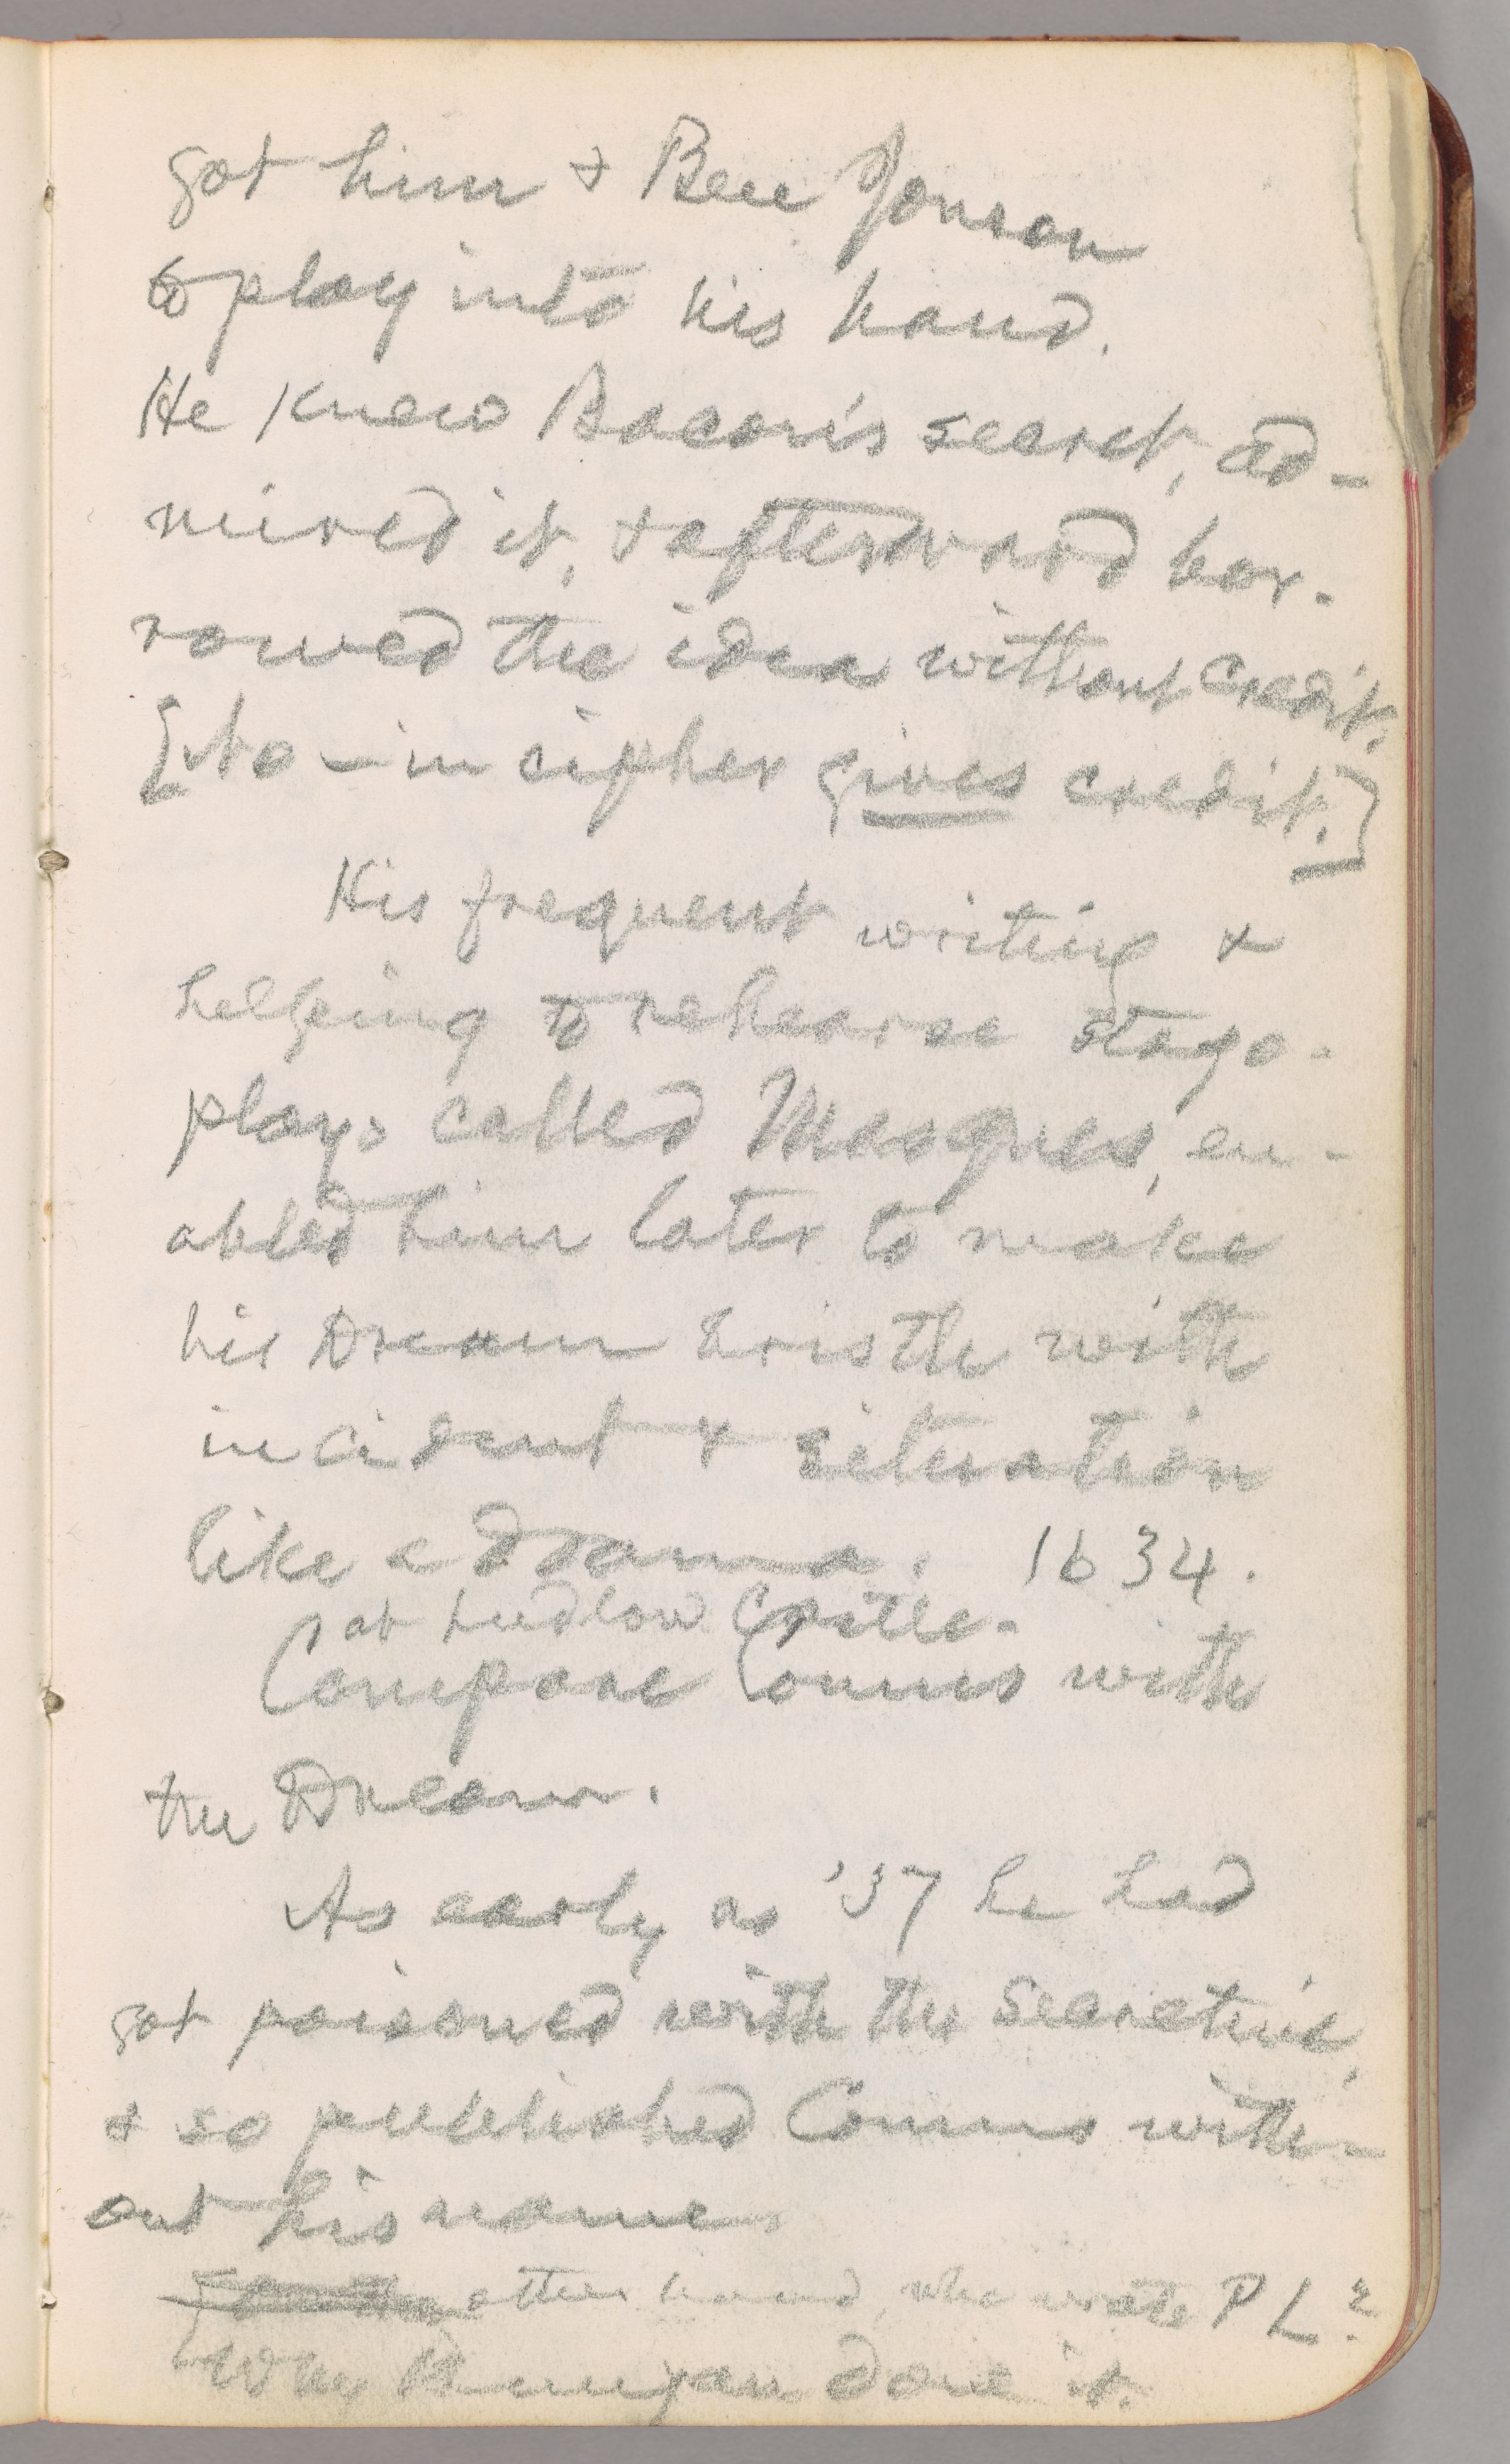 got him & Ben Jonson
to play into his hand.
He knew Bacon's secret, ad-
mired it, & afterward bor-
rowed the idea without credit.
[No — in cipher gives credit.]
His frequent writing &
helping to rehearse stage-
plays called Masques, en-
abled him later to make
his Dream bristle with
incident & situation
like a drama. 1634.
at Ludlow Castle.
Compare Comus with
the Dream.
As early as '37 he had
got poisoned with the secretive,
& so published Comus with-
out his name.
other hand, who wrote PL?
Why Bunyan done it.